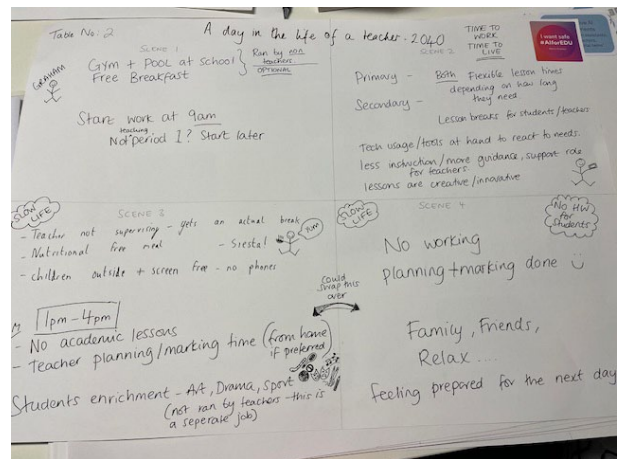 Table No: 2
A day in the life of a teacher - 2040
TIME TO
WORK
TIME TO
LIVE
I want safe
#AIforEDU
SCENE 1
GRAHAM
Gym + Pool at school
Free Breakfast
Ran by
teachers.
OPTIONAL
Start work at 9am
teaching
Not period 1? Start later
SCENE 2
Primary - Both Flexible lesson times
depending on how long
they need.
Secondary -
Lesson breaks for students/teachers
Tech usage/tools at hand to react to needs.
less instruction/more guidance, support role
for teachers
lessons are creative/innovative
SLOW
LIFE
SCENE 3
- Teacher not supervising - gets an actual break
- Nutritional free meal
- Siesta!
- children outside + screen free - no phones
1pm - 4pm
- No academic lessons
- Teacher planning/marking time (from home
if preferred)
Students enrichment - Art, Drama, Sport
(not ran by teachers - this is
a seperate job)
could
swap this
over
SLOW
LIFE
SCENE 4
No HW
for
students
No working
planning + marking done
Family, Friends,
Relax....
feeling prepared for the next day